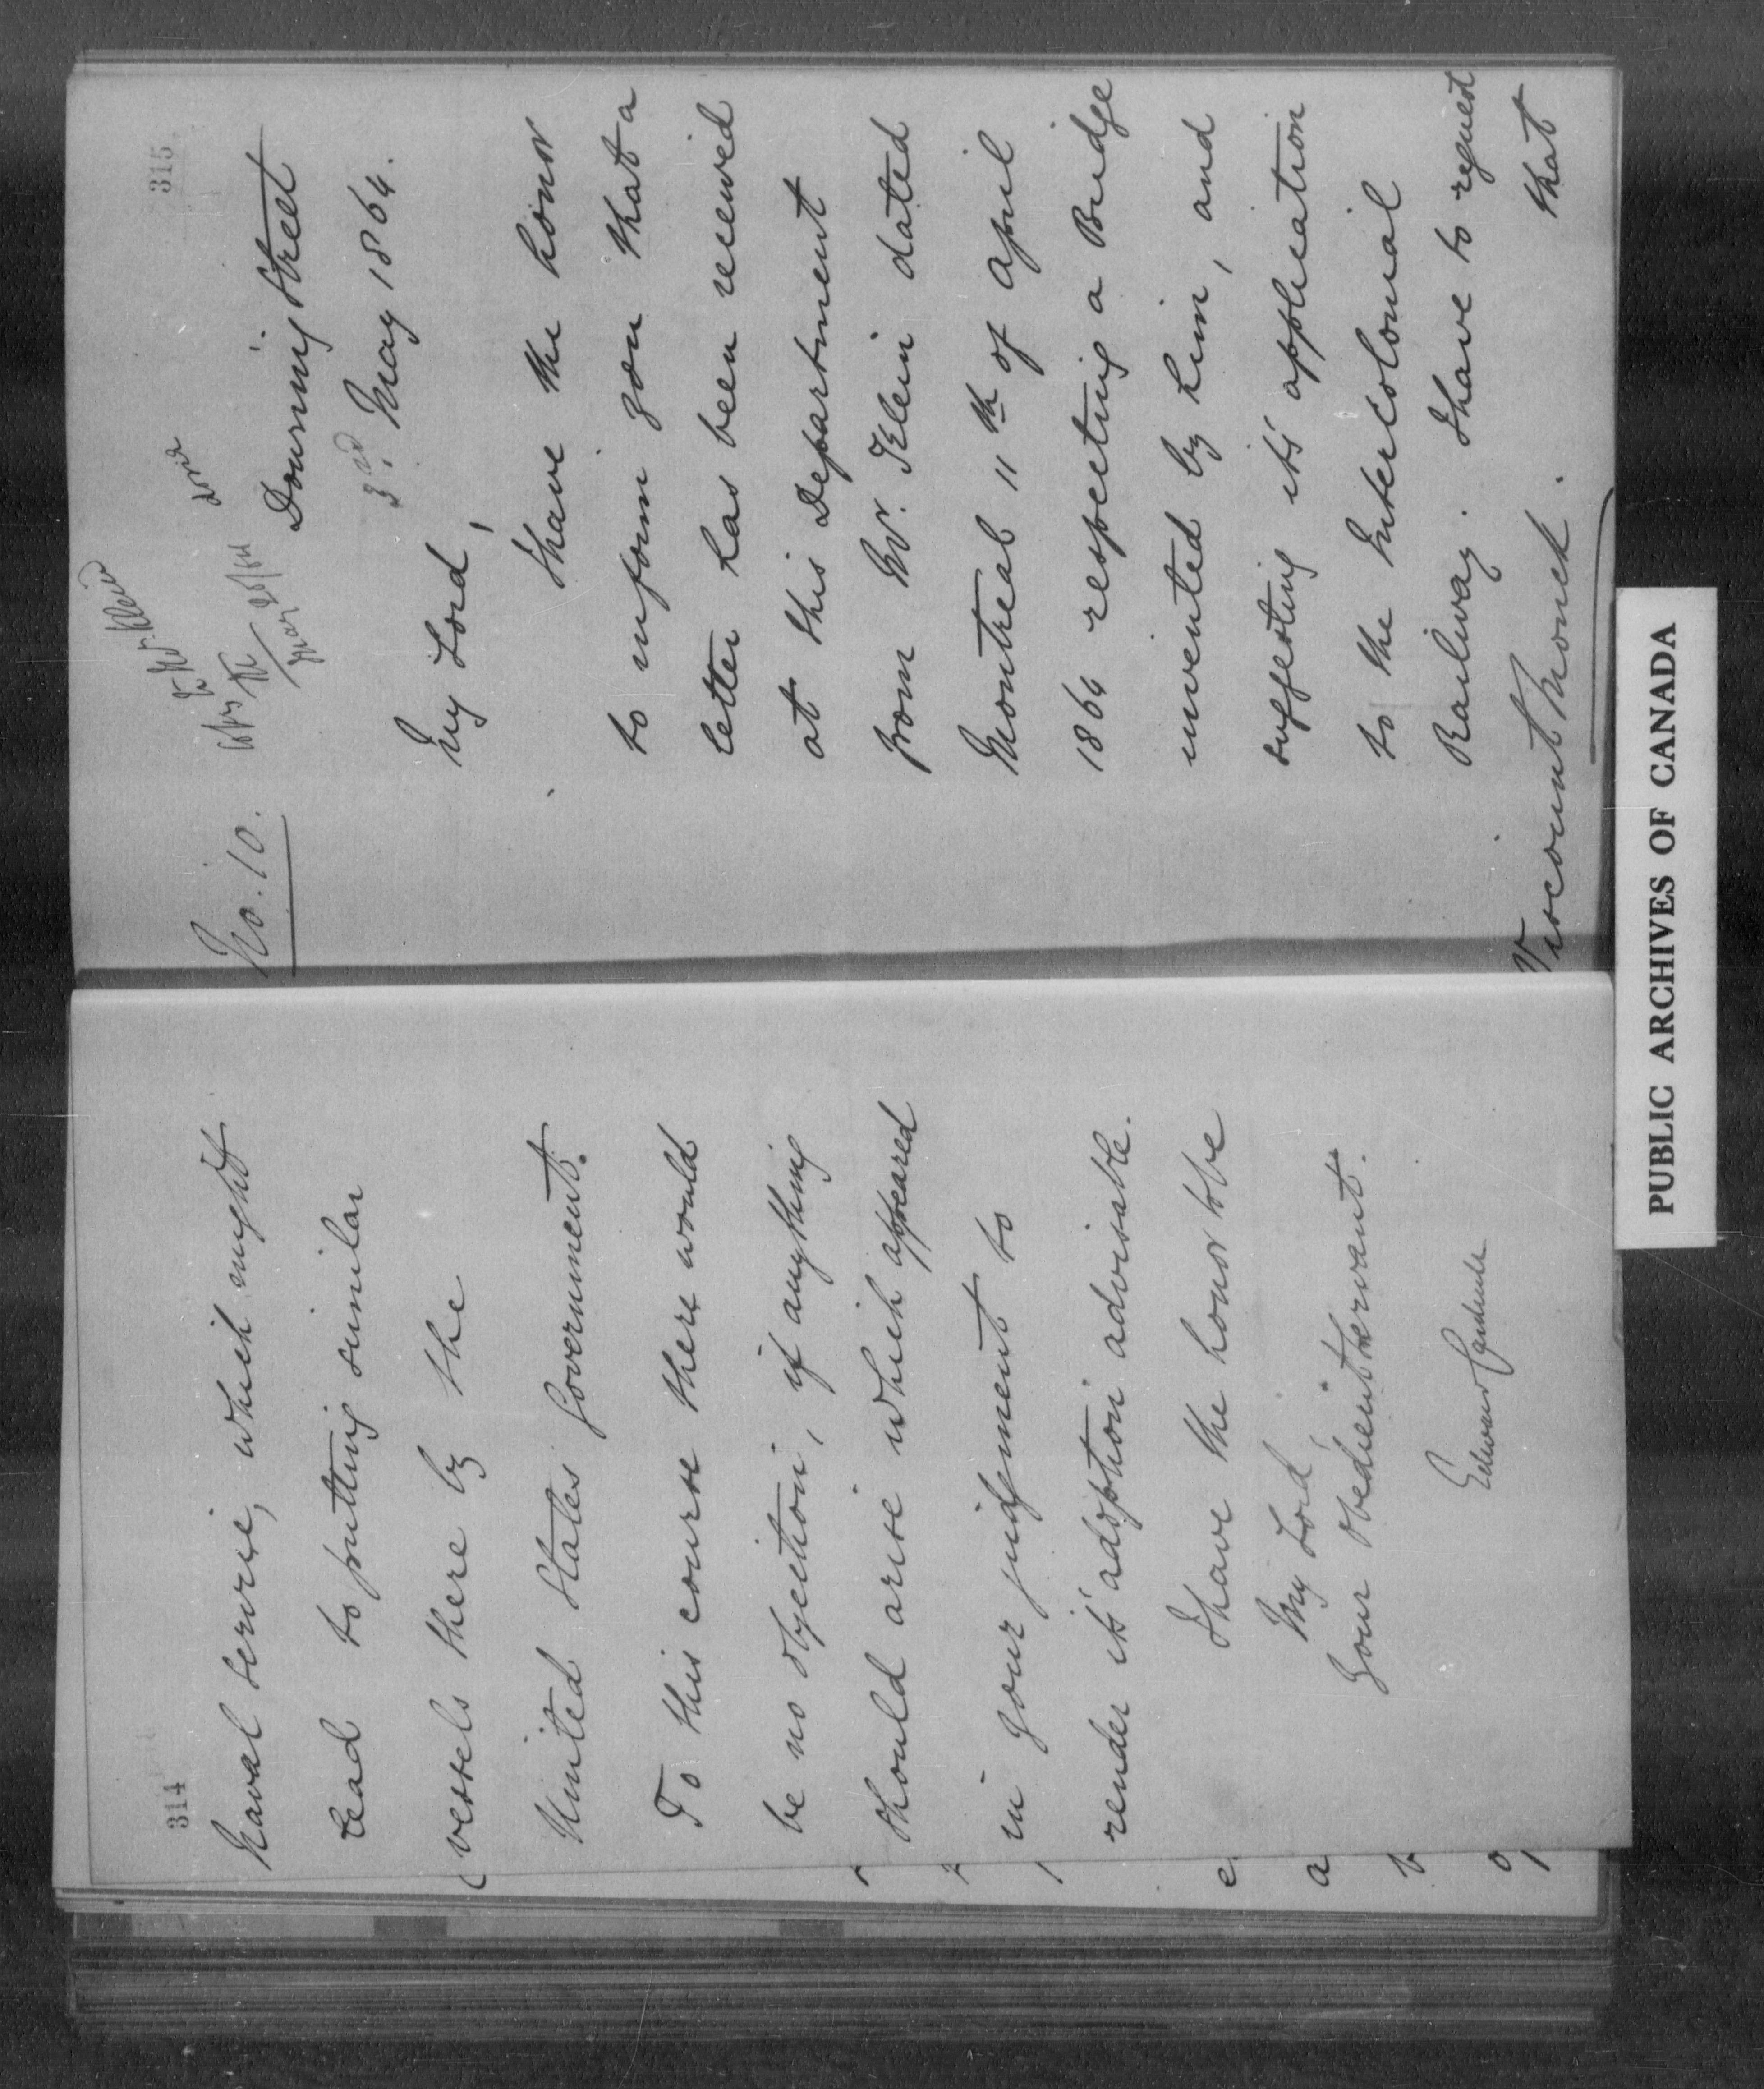 314
Naval Service, which might
lead to putting similar
vessels there by the
United States Government.
To this course there would
be no objection, if anything
should arise which appeared
in your judgment to
render its adoption advisable.
I have the honor to be
My Lord,
Your obedient servant.
Edward Cardwell
315
No. 10.
to Mr. Klein
Copy
May 26/64
Downing Street
3rd. May 1864.
My Lord,
I have the honor
to inform you that a
letter has been received
at this Department
from Mr. Klein dated
Montreal 11th of April
1864 respecting a Bridge
invented by him, and
suggesting its application
to the Intercolonial
Railway. I have to request
that
Viscount Monck.
PUBLIC ARCHIVES OF CANADA